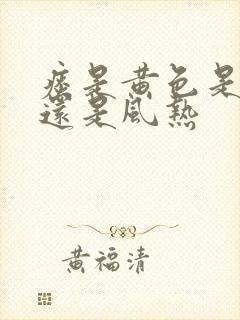 痰是黃色是
還是風熱
黃福清